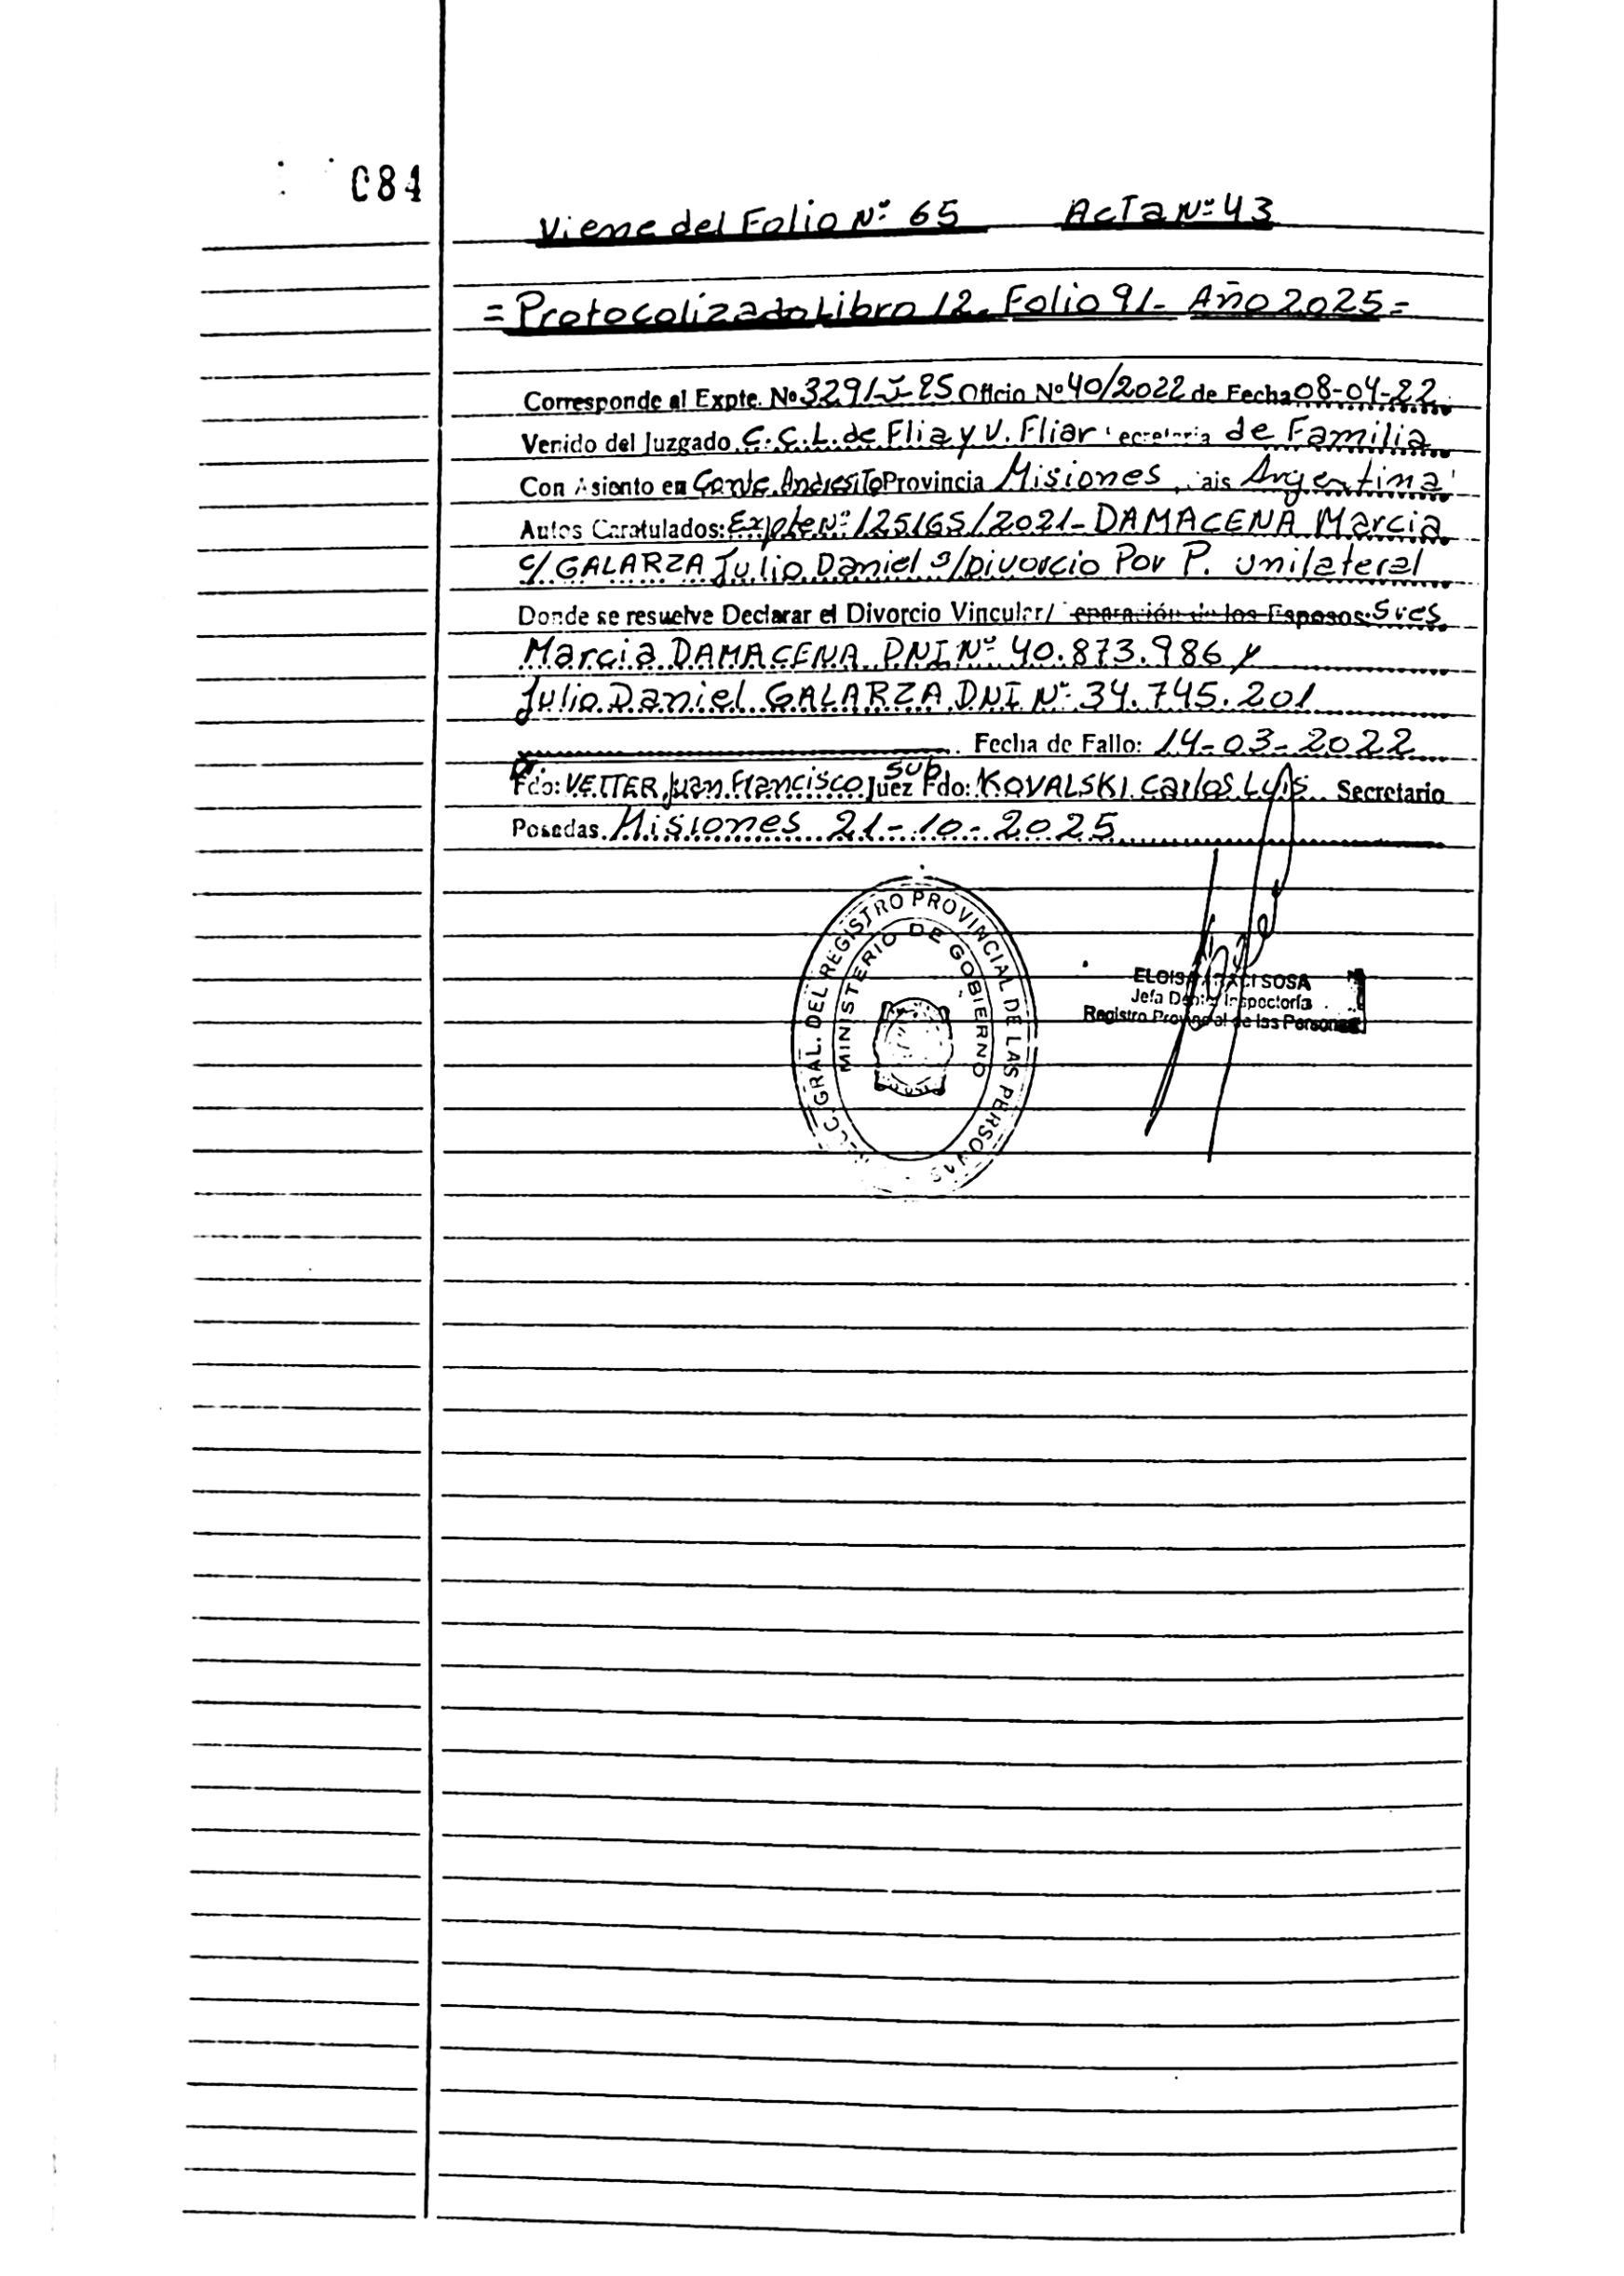 084
Viene del Folio Nº 65 Acta Nº 43
= Protocolizado Libro 12. Folio 91- Año 2025=
Corresponde al Expte. Nº 3291-J-25 Oficio Nº 40/2022 de Fecha 08-04-22
Venido del Juzgado C.C.L. de Flia y V. Fliar ecretaria de Familia
Con Asiento en Comte. Andresito Provincia Misiones, ais Argentina
Autos Caratulados: Expte Nº 125165/2021- DAMACENA Marcia
c/ GALARZA Julio Daniel s/Divorcio Por P. unilateral
Donde se resuelve Declarar el Divorcio Vincular/ eparación de los Esposos: Sres
Marcia DAMACENA DNI Nº 40.873.986 y
Julio Daniel GALARZA DNI Nº 34.745.201
Fecha de Fallo: 14-03-2022
Fdo: VETTER Juan Francisco Juez Sub Fdo: KOVALSKI Carlos Luis Secretario
Posadas. Misiones 21-10-2025
GRAL. DEL REGISTRO PROVINCIAL DE LAS PERSONAS
MINISTERIO DE GOBIERNO
SOSA
Jefa Dpto. Inspectoría
Registro Provincial de las Personas